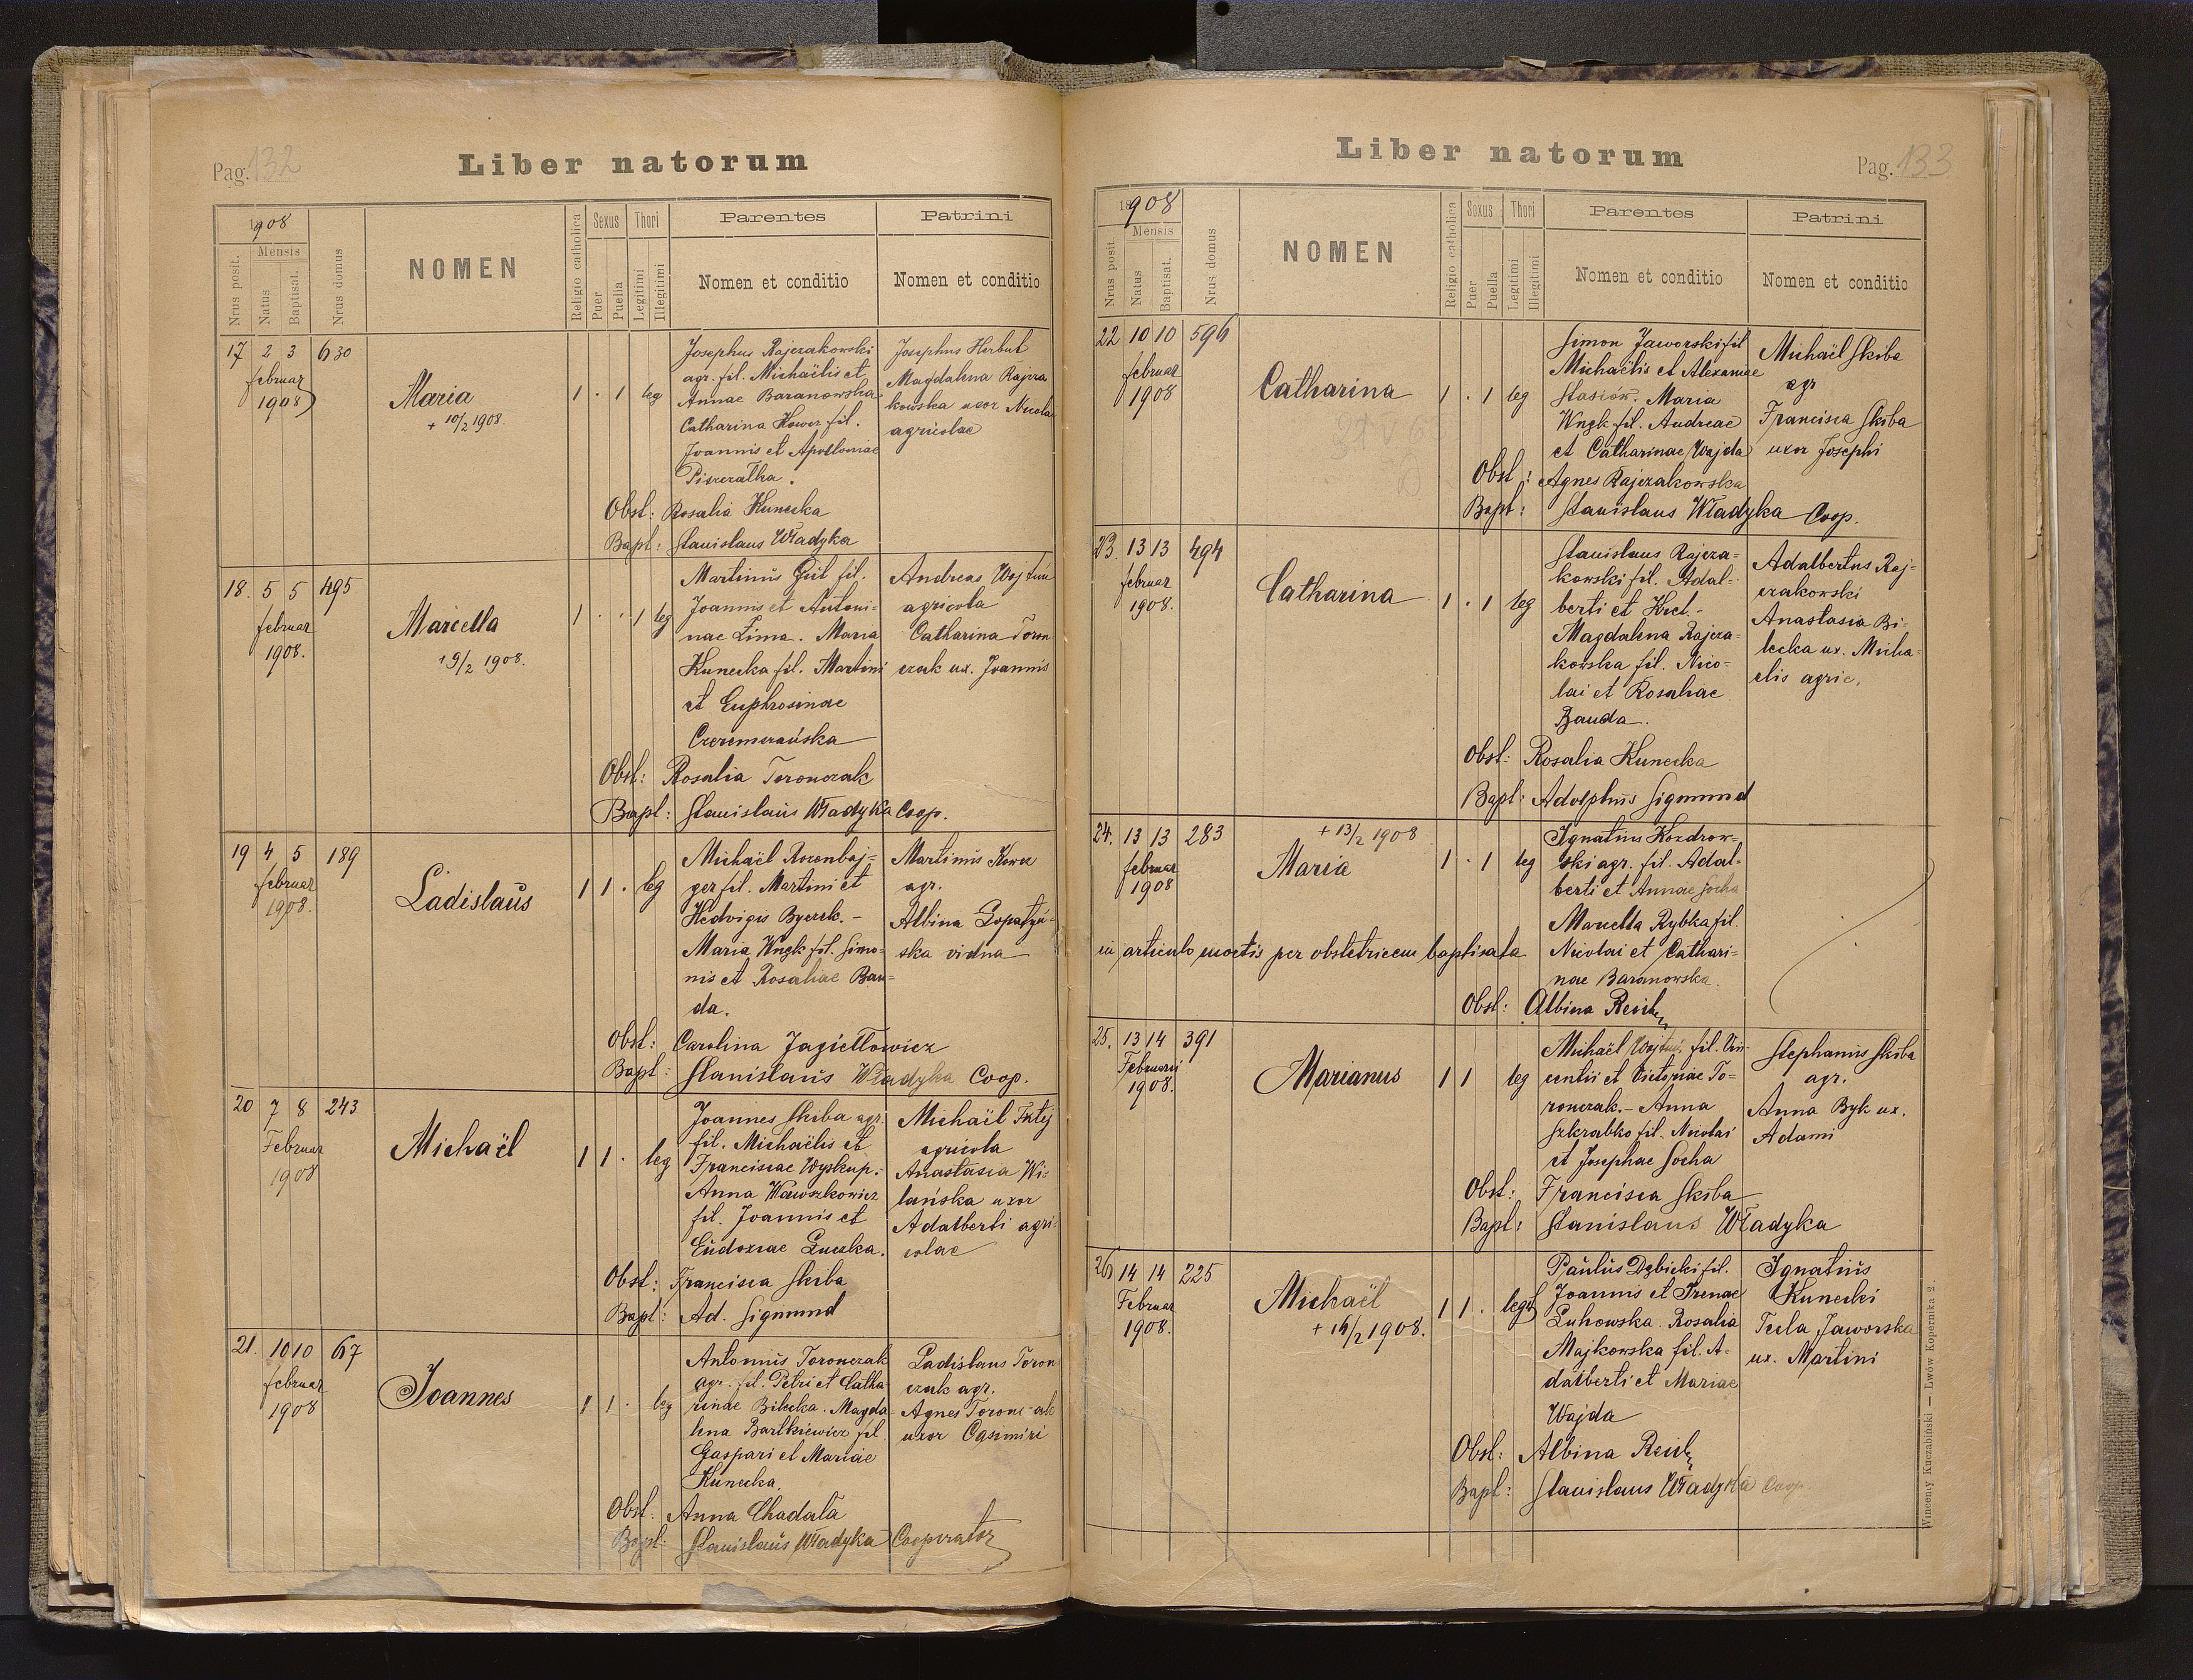 Pag. 132
Liber natorum
1908
Mensis
Nrus posit.
Natus
Baptisat.
Nrus domus
NOMEN
Religio catholica
Sexus
Puer
Puella
Thori
Legitimi
Illegitimi
Parentes
Nomen et conditio
Patrini
Nomen et conditio
17 2 3 630
februar
1908
Maria
+ 10/2 1908.
1 . 1 leg
Josephus Rajczakowski
agr. fil. Michaëlis et
Annae Baranowska
Catharina Kowcz fil.
Joannis et Apolloniae
Josephus Herbut
Magdalena Rajcza
kowska uxor Nicolai
agricolae
Obst: Rosalia Kunecka
Bapt: Stanislaus Władyka
18. 5 5 495
februar
1908.
Marcella
+ 9/2 1908.
1 . . 1 leg
Martinus Gil fil.
Joannis et Antoni-
nae Zima. Maria
Kunecka fil. Martini
et Euphrosinae
Czeremszańska
Andreas Wojtuń
agricola
Catharina Toron
czak ux. Joannis
Obst: Rosalia Toronczak
Bapt: Stanislaus Władyka Coop.
19 4 5 189
februar
1908.
Ladislaus
1 1 . leg
Michaël Rozenbaj-
ger fil. Martini et
Hedvigis Byczek. -
Maria Wnęk fil. Simo-
nis et Rosaliae Ban-
da.
Martinus Kowcz
agr.
Albina Łopatyń-
ska vidua
Obst: Carolina Jagiełłowicz
Bapt: Stanislaus Władyka Coop.
20 7 8 243
Februar
1908
Michaël
1 1 . leg
Joannes Skiba agr.
fil. Michaëlis et
Franciscae Wyskup.
Anna Wawszkowicz
fil. Joannis et
Eudoxiae Łuczka.
Michaël
agricola
Anastasia Wi-
lańska uxor
Adalberti agri-
colae
Obst: Francisca Skiba
Bapt: Ad. Sigmund
21. 10 10 67
februar
1908
Joannes
1 1 . leg
Antonius Toronczak
agr. fil. Petri et Catha
rinae Bilecka. Magda-
lena Bartkiewicz fil.
Gaspari et Mariae
Kunecka.
Ladislaus Toron
czak agr.
Agnes Toronczak
uxor Casimiri
Obst: Anna Chadała
Bapt: Stanislaus Władyka Cooperator
Liber natorum
Pag. 133
1908
Mensis
Nrus posit
Natus
Baptisat.
Nrus domus
NOMEN
Religio catholica
Sexus
Puer
Puella
Thori
Legitimi
Illegitimi
Parentes
Nomen et conditio
Patrini
Nomen et conditio
22 10 10 596
februar
1908
Catharina
1 . 1 leg
Simon Jaworski fil
Michaëlis et Alexandrae
Stasiów. Maria
Wnęk fil. Andreae
et Catharinae Wajda
Michaël Skiba
agr
Francisca Skiba
uxor Josephi
Obst: Agnes Rajczakowska
Bapt: Stanislaus Władyka Coop.
23. 13 13 494
februar
1908.
Catharina
1 . 1 leg
Stanislaus Rajcza-
kowski fil. Adal-
berti et Hrel. -
Magdalena Rajcza-
kowska fil. Nico-
lai et Rosaliae
Banda.
Adalbertus Raj-
czakowski
Anastasia Bi-
lecka ux. Micha-
elis agric.
Obst: Rosalia Kunecka
Bapt: Adolphus Sigmund
24. 13 13 283
februar
1908
+ 13/2 1908
Maria
1 . 1 leg
Ignatius Kozdrow-
ski agr. fil. Adal-
berti et Annae Socha
Marcella Rybka fil.
Nicolai et Cathari-
nae Baranowska.
in articulo mortis per obstetricem baptisata
Obst: Albina Reich
25. 13 14 391
Februarii
1908.
Marianus
1 1 leg
Michaël Wojtuń, fil. Vin-
centii et Victoriae To-
ronczak. - Anna
Szkrabko fil. Nicolai
et Josephae Socha
Stephanus Skiba
agr.
Anna Byk ux.
Adami
Obst: Francisca Skiba
Bapt: Stanislaus Władyka
26 14 14 225
Februar
1908.
Michaël
+ 16/2 1908.
1 1 . legit
Paulus Dębicki fil.
Joannis et Irenae
Łuhowska. Rosalia
Majkowska fil. A-
dalberti et Mariae
Wajda
Ignatius
Kunecki
Tecla Jaworska
ux. Martini
Obst: Albina Reich
Bapt: Stanislaus Władyka Coop.
Wincenty Kuczabiński — Lwów Kopernika 2.